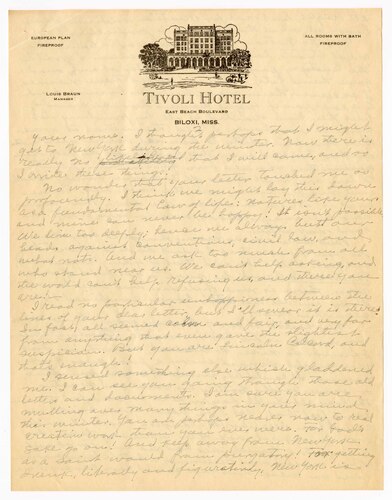 EUROPEAN PLAN
FIREPROOF
ALL ROOMS WITH BATH
FIREPROOF
LOUIS BRAUN
MANAGER
TIVOLI HOTEL
EAST BEACH BOULEVARD
BILOXI, MISS.
your name. I thought perhaps that I might
get to New York during the winter. Now there is
really no that I will come, and so
I write these things.
No wonder that your letter touched me so
profoundly. I think one might lay this down
as a fundamental law of life: Natures like yours
and mine can never be happy! It isn't possible.
We live too deeply; hence we always butt our
heads against conventions, civil law, and
what not. And we ask too much from all
who stand near us. We can't help asking, and
the world can't help refusing us, and there you
are!
I read no particular unhappiness between the
lines of your dear letter, but I'll swear it is there.
In fact, all seemed calm and fair, and away far
from anything that even gave the slightest
suspicion. But you are and
that's enough!
I sense something else which gladdened
me. I can see you going through those old
letters and documents. I am sure you are
mulling over many things in your mind
this winter. You are perhaps readier now to real
creative work than you ever were. For God's
sake go on! And keep away from New York
as a Saint would from purgatory! For getting
drunk, literally and figuratively, New York is